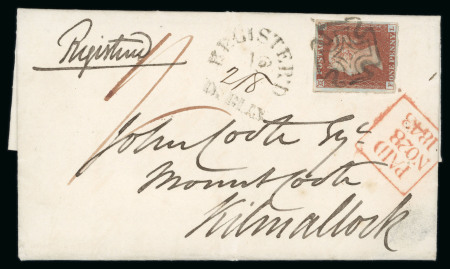 Registered
REGISTERED
2/8
DUBLIN
John Coote Esqr
Mount Coote
Kilmallock
PAID
NO 28
1843